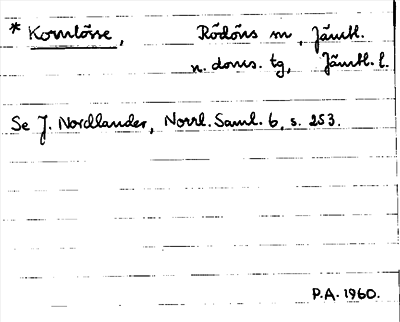 * Kornlösse, Rödöns sn, Jämtl.
n. doms. tg, Jämtl. l.
Se J. Nordlander, Norrl. Saml. 6, s. 253.
P.A. 1960.